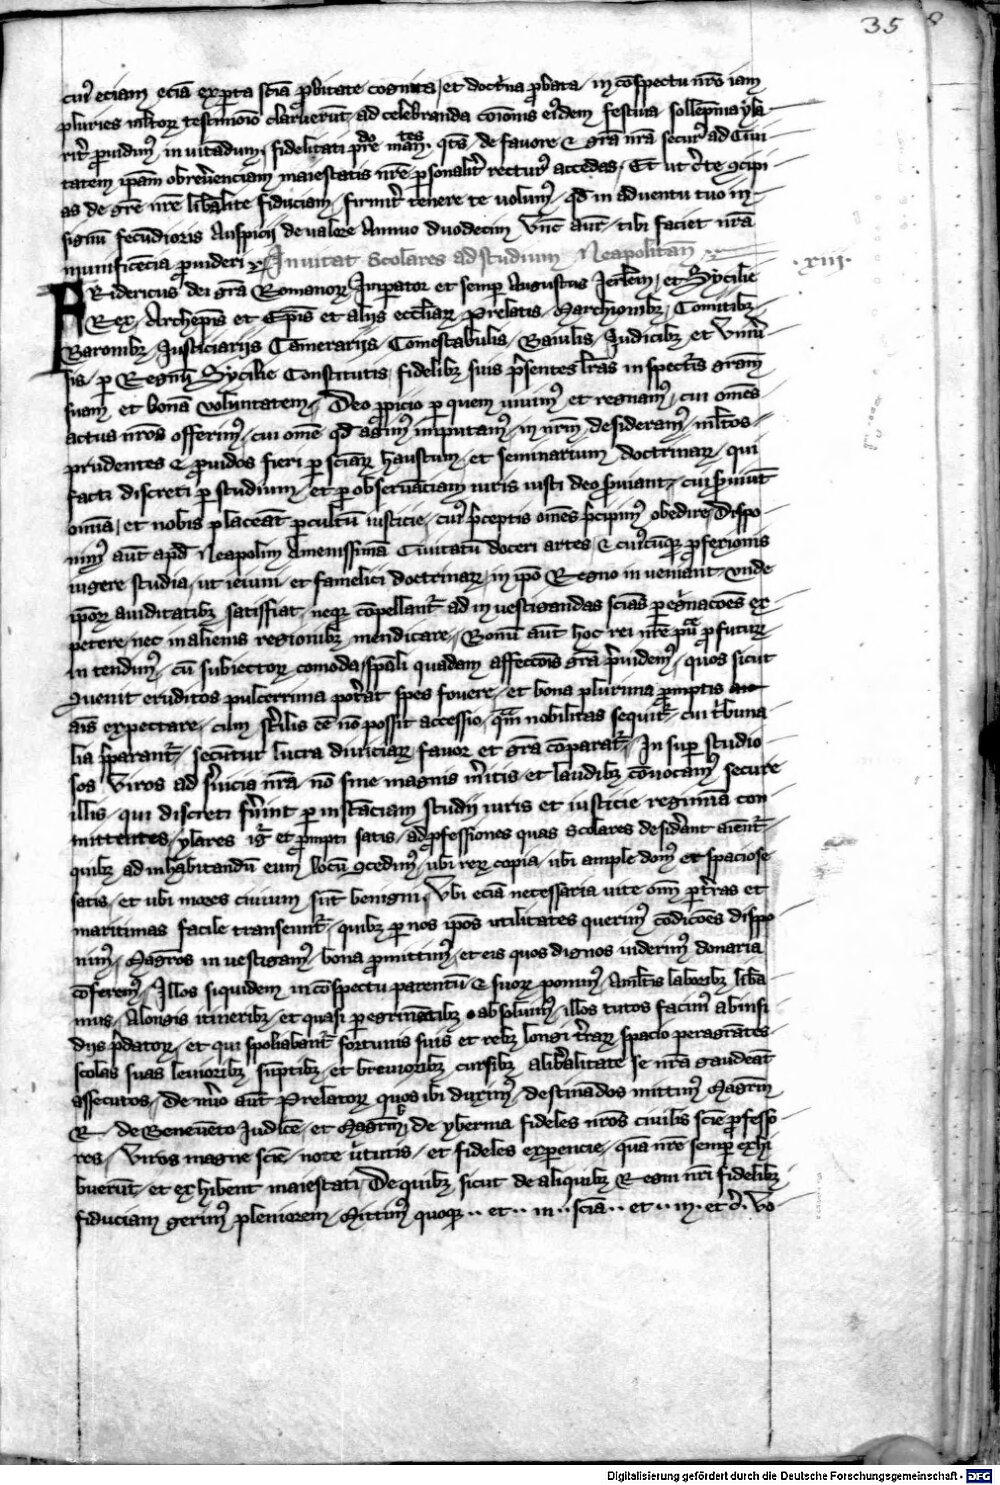 35 8
cui9 eciam eciā exp̱ta sciā ꝓbitate cognita, et doctͥna ꝓbata in cōspectu nrō iam
pluries mltorꝝ testimonio claruerūt, ad celebranda eiusdem festiua sollempnia
fidelitati de fauore et grā nrā ad Ciui
tatem ip̄am ob reuerenciam maiestatis nrē ꝑsonalit̾ accedas. Et ut ꝯcipi
as de grē nrē fiduciam, firmit̾ tenere te volum9, qd in aduentu tuo in
signū fecundioris Auspicij de valore Annuo duodecim vnc̄ aur̄ tibi faciet nrā
munificēcia ꝓuideri
Inuitat Scolares ad studium Neapolitan̄
.xiij.
FRidericus dei grā Romanorꝝ Imperator et semꝑ Augustus Jerlem et Sycilie
Rex, Archiep̄is et Ep̄is et alijs eccliarꝝ Prelatis, Marchionibꝫ, Comitibꝫ,
Baronibꝫ, Justiciarijs Camerarijs Comestabulis, Baiulis, Judicibꝫ et Vniu̾
sis ꝑ Regnū Sycilie Constitutis, fidelibꝫ suis p̄sentes lrās inspectīs grām
suam et bonā voluntatem. Deo ꝓpicio ꝑ quem viuim9 et regnam9, cui om̄es
actus nrōs offerim9, cui om̄e qd agim9 imputam9, in desideram9, mltos
prudentes et ꝓuidos fieri ꝑ sciarꝝ haustum, et seminarium doctrinarꝝ, qui
facti discreti ꝑ studium, et ꝑ obseruāciam iuris iusti deo ꝓuiant, cui ꝓuiūt
omīa, et nobis placeāt ꝑ cultū iusticie, cui9 p̄ceptis om̄es p̄cipim9 obedire, Dispo
nim9 aūt apd Neapolim Amenissimā Ciuitatū doceri artes, et cui9cūqꝫ ꝓfexionis
uigere studia, ut ieiuni et famelici doctrinarꝝ, in ip̄o Regno inueniant vnde
ip̄orꝝ auiditatibꝫ satisfiat, neqꝫ cōpellant̾ ad inuestigandas sciās ꝑegͥnacōes ex
petere, nec in alienis regionibꝫ mendicare, Bonū aūt hoc rei nrē ꝓfuturꝝ
intendim9, cū subiectorꝝ comoda, sp̄ali quadam affectōis grā ꝓuidem9, quos sicut
ꝯuenit eruditos pulcerrima pot̾at spes fouere, et bona plurima ꝓmptis
aīs expectare, cum st̾ilis eē nō possit accessio, qm̄ nobilitas sequit̾, cui tͥbuna
lia p̄parant̾, secūtur lucra diuiciarꝝ fauor et grā cōparat̾, Insuꝑ studio
sos viros ad s̾uicia nrā nō sine magnis m̾itis, et laudibꝫ cōuocam9, secure
illis, qui discreti fu̾int ꝑ instāciam studij iuris et iusticie regimīa con
mittentes, ylares igͥ et ꝓmpti satis, ad ꝓfessiones quas Scolares desid̾ant
quibꝫ ad inhabitandū eum locū ꝯcedim9, ubi rerꝝ copia, ubi ample dom9 et spaciose
satis, et ubi mores ciuium sūt benigni, Vbi eciā necessaria vite om̄ ꝑ t̾ras et
maritimas facile transeunt̾, quibꝫ ꝑ nos ip̄os utilitates querim9 cōdicōes dispo
nim9, Magr̄os inuestigam9, bona ꝓmittim9, et eis quos dignos viderim9 donaria
cōferem9, Illos siquidem in cōspectu parentū et suorꝝ ponim9, Amltis laboribꝫ libā
mus, Alongis itineribꝫ, et quasi ꝑegrinacōibꝫ absoluim9, illos tutos facim9 ab insi
dijs p̄datorꝝ, et qui spoliabant̾ fortunis suis et rebꝫ longi t̾rarꝝ spacio peragrātes
scolas suas leuioribꝫ sūptibꝫ, et breuioribꝫ cursibꝫ alib̾alitate se nrā gaudeāt
assecutos, De nu̾o aūt Prelatorꝝ quos ibi duxim9, destinādos mittim9 Magr̄m
R. de Beneuēto Judicē, et Magr̄m de yberma fideles nrōs ciuilis sciē ꝓfesso
res, Viros magne sciē note v̾tutis, et fideles exꝑiencie, quā nrē semꝑ exhi
buerūt, et exhibent maiestati, De quibꝫ, sicut de aliquibꝫ Regni nrī fidelibꝫ
fiduciam gerim9 pleniorem, Mittim9 quoqꝫ .. et .. in .. sciā .. et .. in. et vo
Digitalisierung gefördert durch die Deutsche Forschungsgemeinschaft - DFG